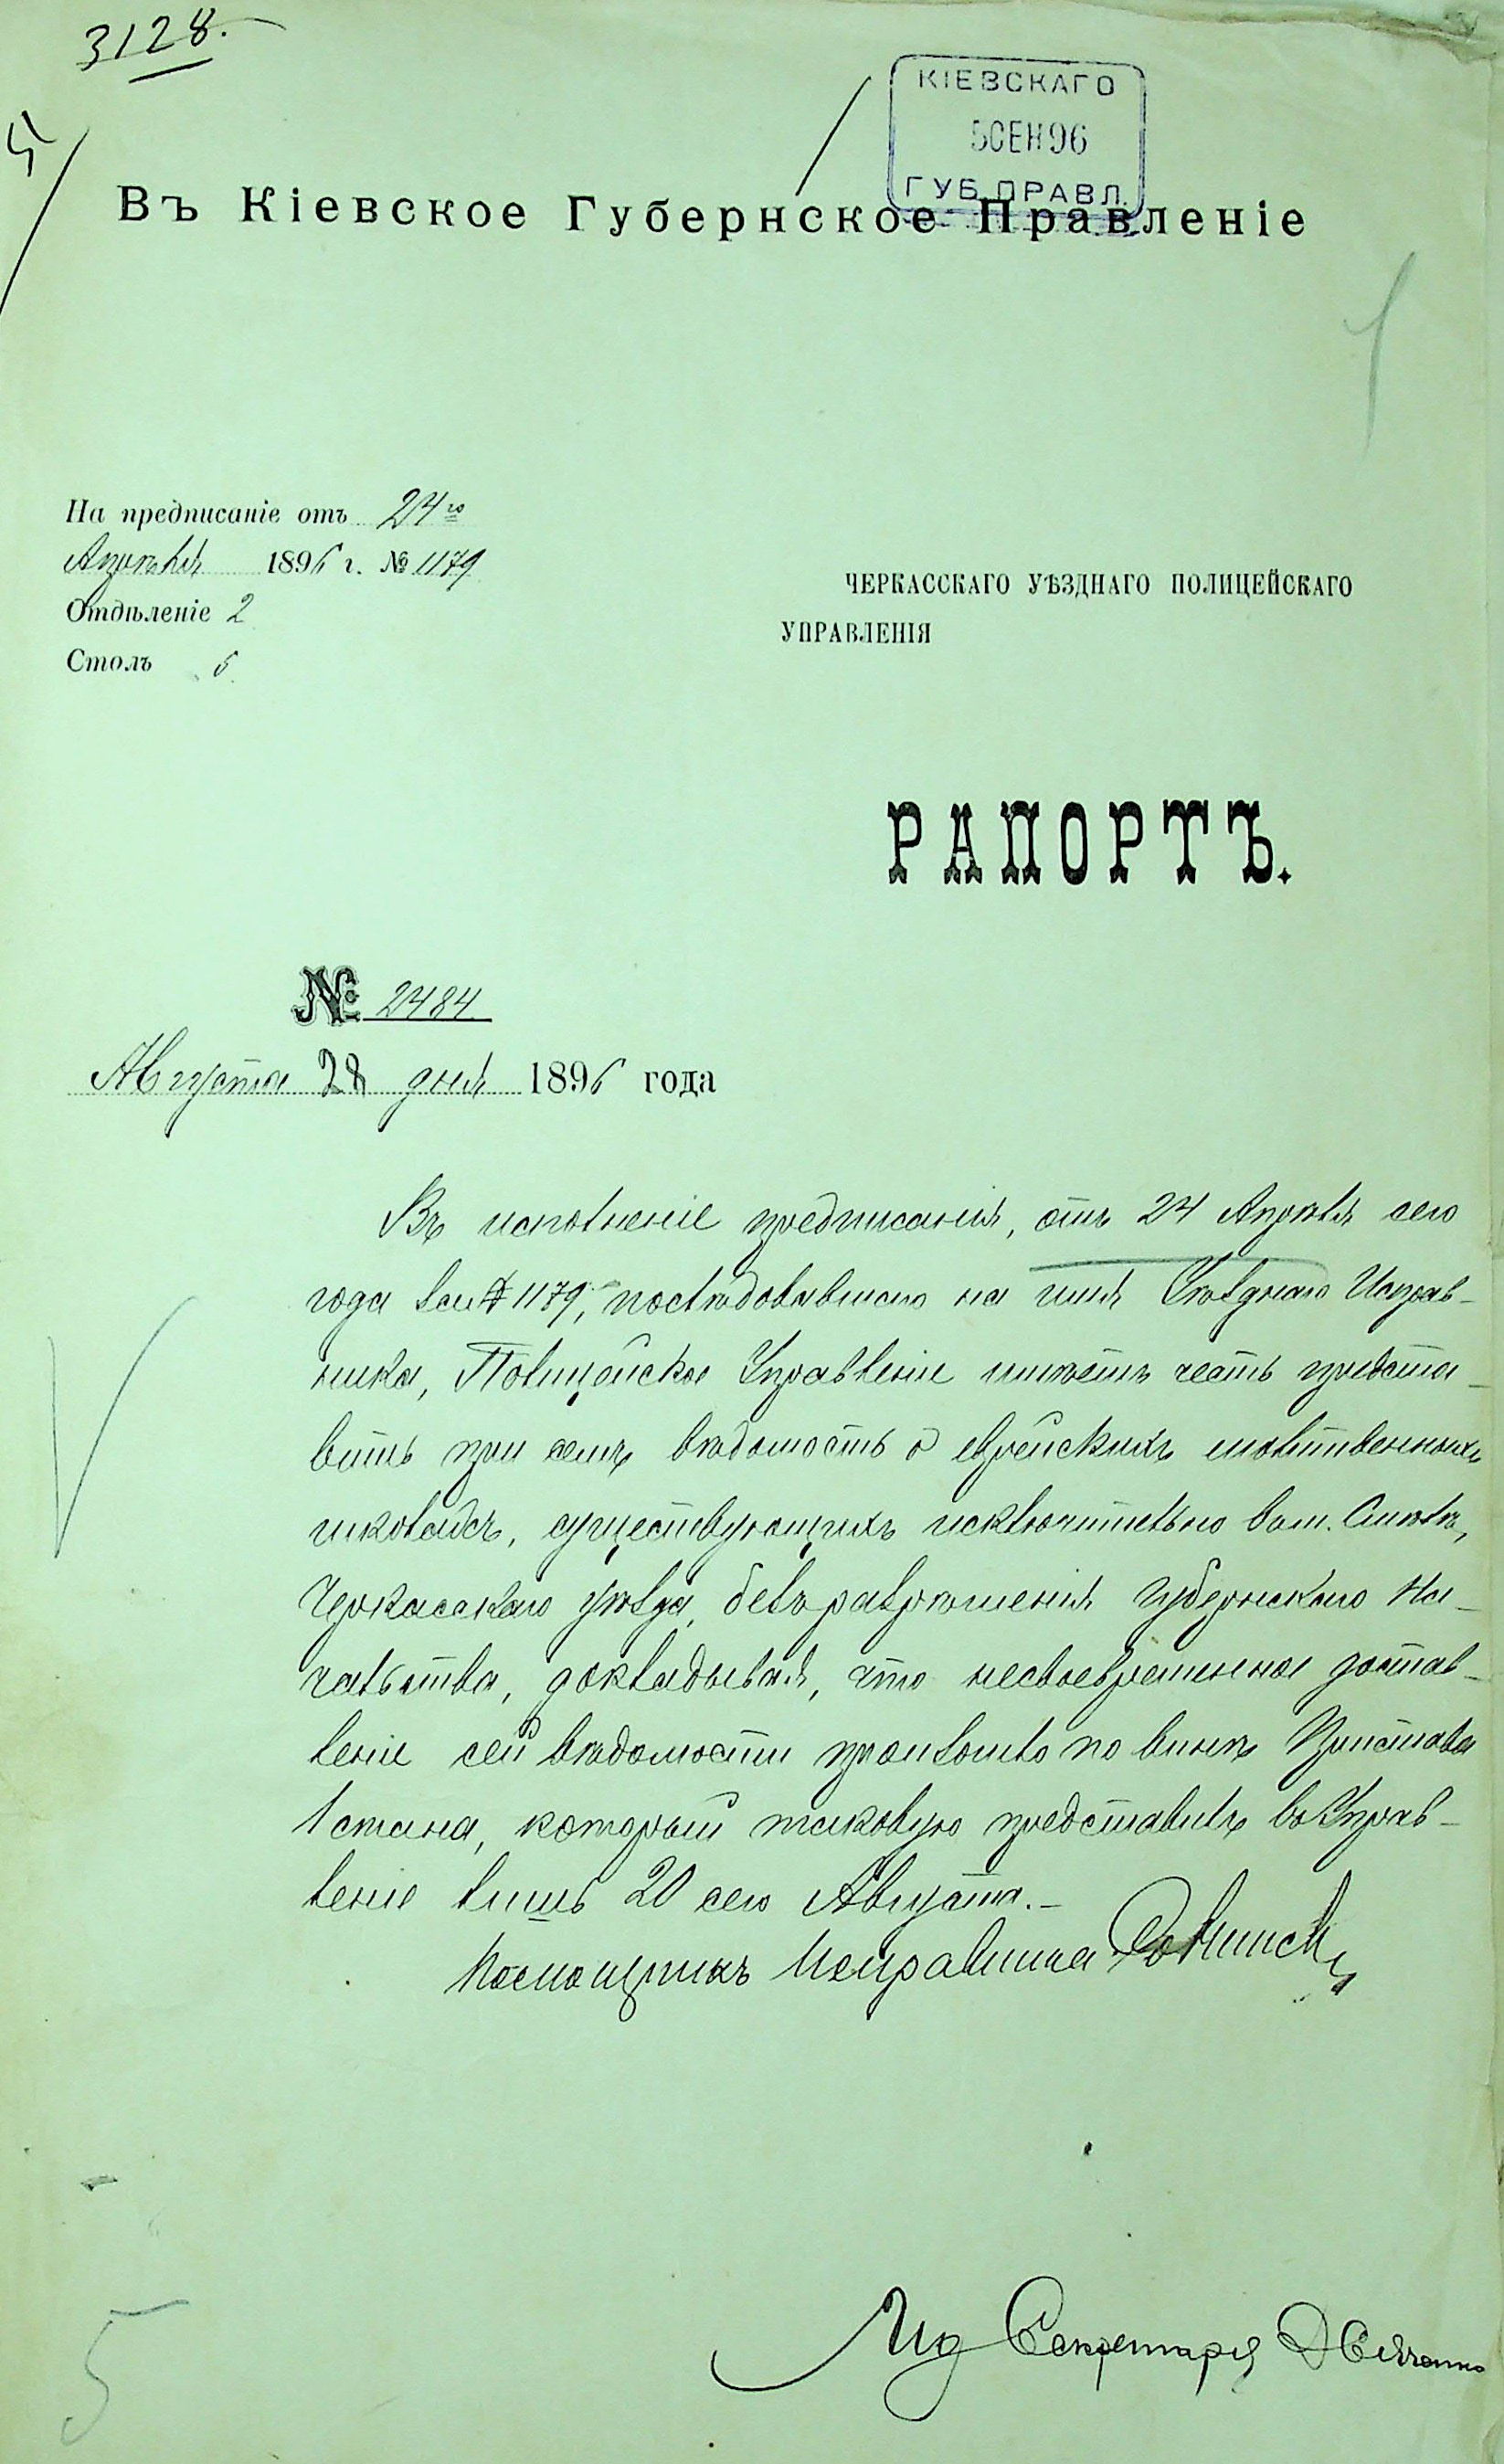 3128.
5
КІЕВСКАГО
5 СЕН 96
ГУБ. ПРАВЛ.
Въ Кіевское Губернское Правленіе
1
На предписаніе отъ 24го
Апрѣля 1896 г. № 1179
Отдѣленіе 2
Столъ 5
ЧЕРКАССКАГО УѢЗДНАГО ПОЛИЦЕЙСКАГО
УПРАВЛЕНІЯ
РАПОРТЪ.
№ 2484
Августа 28 дня 1896 года
Въ исполненіе предписанія, отъ 24 Апрѣля сего
года за № 1179, послѣдовавшаго на имя Уѣзднаго Исправ-
ника, Полицейское Управленіе имѣетъ честь предста-
вить при семъ вѣдомость о еврейскихъ молитвенныхъ
школахъ, существующихъ исключительно въ м. Смѣлѣ,
Черкасскаго уѣзда, безъ разрѣшенія Губернскаго На-
чальства, докладывая, что несвоевременное достав-
леніе сей вѣдомости произошло по винѣ Пристава
1 стана, который таковую представилъ въ Управ-
леніе лишь 20 сего Августа.-
Помощникъ Исправника
И д Секретаря
5